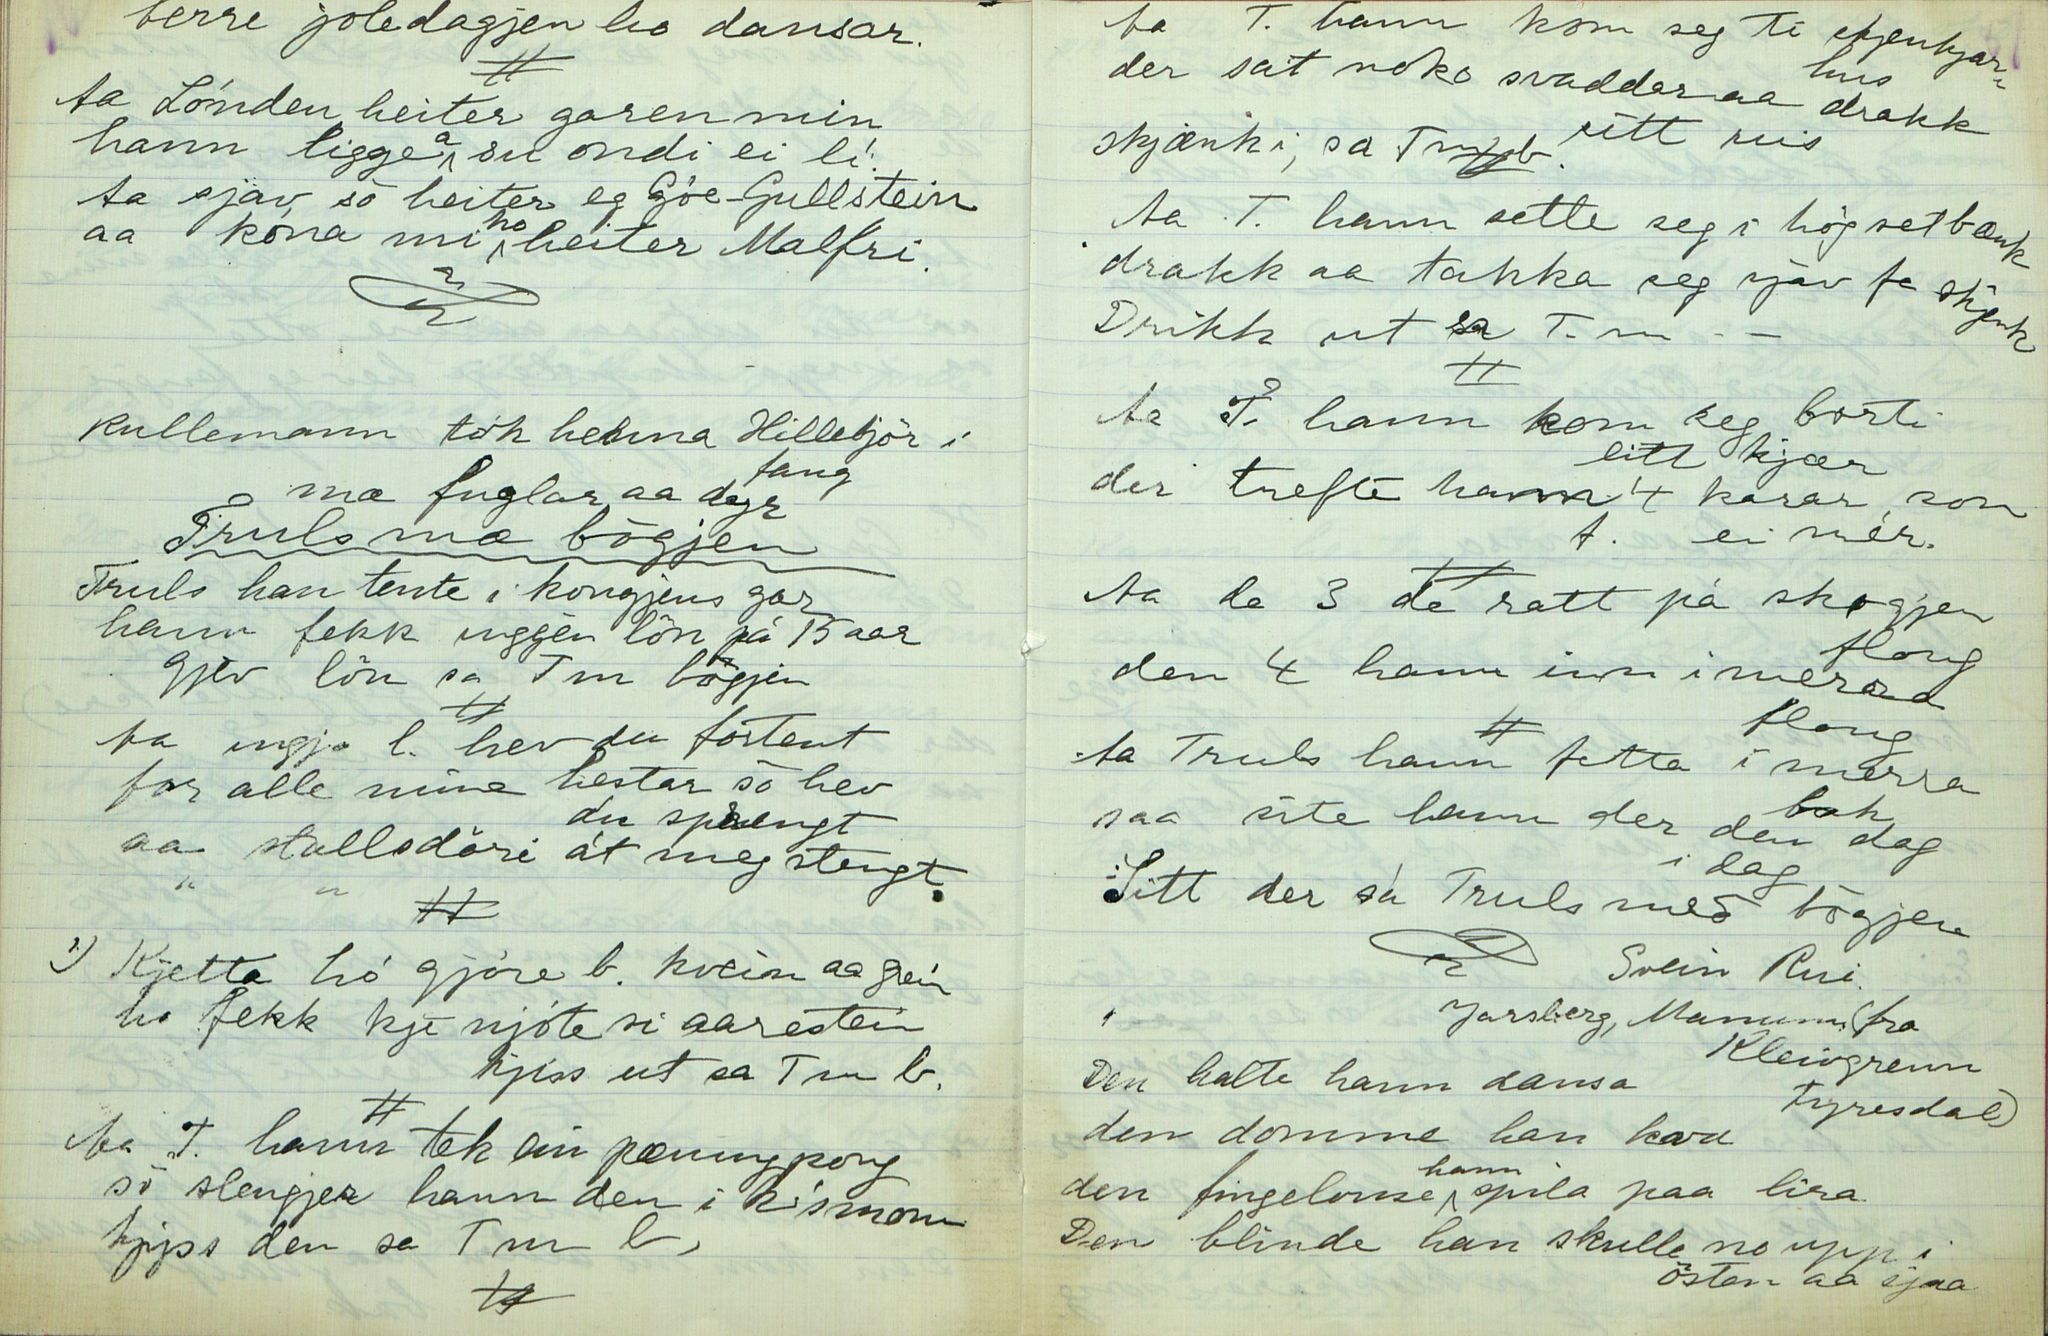 berre joledagjen ho dansar.
#
Aa Lónden heiter garen min
hann liggea su ondi ei li.
Aa sjav, so heiter eg Góe-Gullstein
aa kona mi ho heiter Malfri.
Kullemann tók henna Hillebjör i
fang
mæ fuglar aa dyr
Truls mæ bögjen
Truls han tente i kongjens gar
hann fekk inggjen lön på 15 aar
Gjev lön sa T m bögjen
#
Aa ingjo l. hev du fortent
for alle mine hestar so hev
du sprengt
aa stallsdöri åt meg stengt.
" "
#
1) Kjetta hó gjóre b. kvein aa grein
ho fekk kje njóte si aarestein
kjiss ut sa T m b.
#
Aa T. hann tek ein pæningpong
so slengjer hann den i k's mom
kjyss den sa T m b,
#
Aa T. hann kom seg ti skjenkjar-
hus
der sat noko svaddar aa drakk
sitt rus
skjænk i, sa T m b.
Aa T. hann sette seg i högsetbænk
drakk aa takka seg sjav fe skjenk
Drikk ut sa T. m - -
#
Aa T. hann kom seg borti
eitt kjær
der trefte hann 4 karar, som
t. ei mér.
#
Aa de 3 de ratt på skogjen
flong
den 4 hann inn i merra
flong
#
Aa Truls hann fetta i merra
bak
saa site hann der den dag
i dag
Sitt der sa Truls med bögjen
Svein Rui.
Jarsberg, Manum (fra
Kleivgrenn
Fyresdal)
Den halte hann dansa
den domme han kva
den fingelouse hann spila paa lira
Den blinde han skulle no upp i
östen aa sjaa